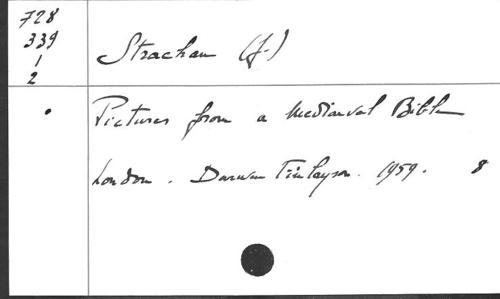 728
339
1
2
Strachan (J.)
Pictures from a Mediaeval Bible
London. Darwen Finlayson. 1959. 8